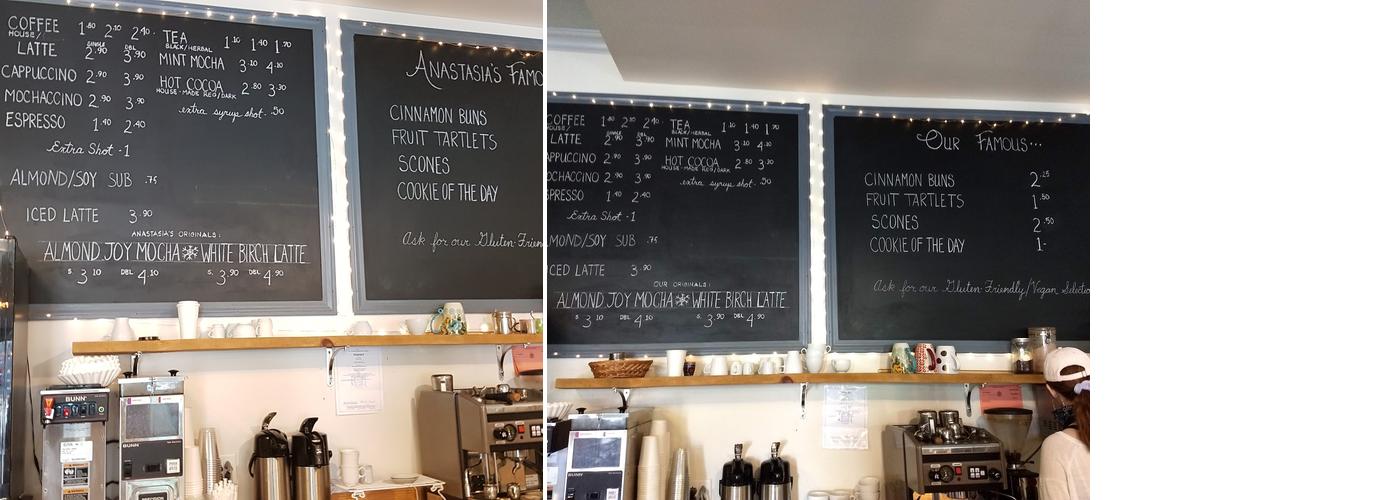 COFFEE 1.80 2.10 2.40
HOUSE/
SINGLE DBL
LATTE 2.90 3.90
CAPPUCCINO 2.90 3.90
MOCHACCINO 2.90 3.90
ESPRESSO 1.40 2.40
Extra Shot - 1
ALMOND/SOY SUB .75
ICED LATTE 3.90
TEA 1.10 1.40 1.70
BLACK/HERBAL
MINT MOCHA 3.10 4.10
HOT COCOA 2.80 3.30
HOUSE-MADE REG/DARK
extra syrup shot .50
ANASTASIA'S ORIGINALS:
ALMOND JOY MOCHA WHITE BIRCH LATTE
S. 3.10 DBL 4.10 S. 3.90 DBL 4.90
ANASTASIA'S FAMO
CINNAMON BUNS
FRUIT TARTLETS
SCONES
COOKIE OF THE DAY
Ask for our Gluten-Frien
BUNN
BUNN
PRECISION
COFFEE 1.80 2.10 2.40
HOUSE/
SINGLE DBL
LATTE 2.90 3.90
APPUCCINO 2.90 3.90
OCHACCINO 2.90 3.90
SPRESSO 1.40 2.40
Extra Shot - 1
MOND/SOY SUB .75
CED LATTE 3.90
TEA 1.10 1.40 1.70
BLACK/HERBAL
MINT MOCHA 3.10 4.10
HOT COCOA 2.80 3.30
HOUSE-MADE REG/DARK
extra syrup shot .50
OUR ORIGINALS:
ALMOND JOY MOCHA WHITE BIRCH LATTE
S 3.10 DBL 4.10 S 3.90 DBL 4.90
OUR FAMOUS...
CINNAMON BUNS 2.25
FRUIT TARTLETS 1.50
SCONES 2.50
COOKIE OF THE DAY 1-
Ask for our Gluten-Friendly/Vegan Selectio
BUNN